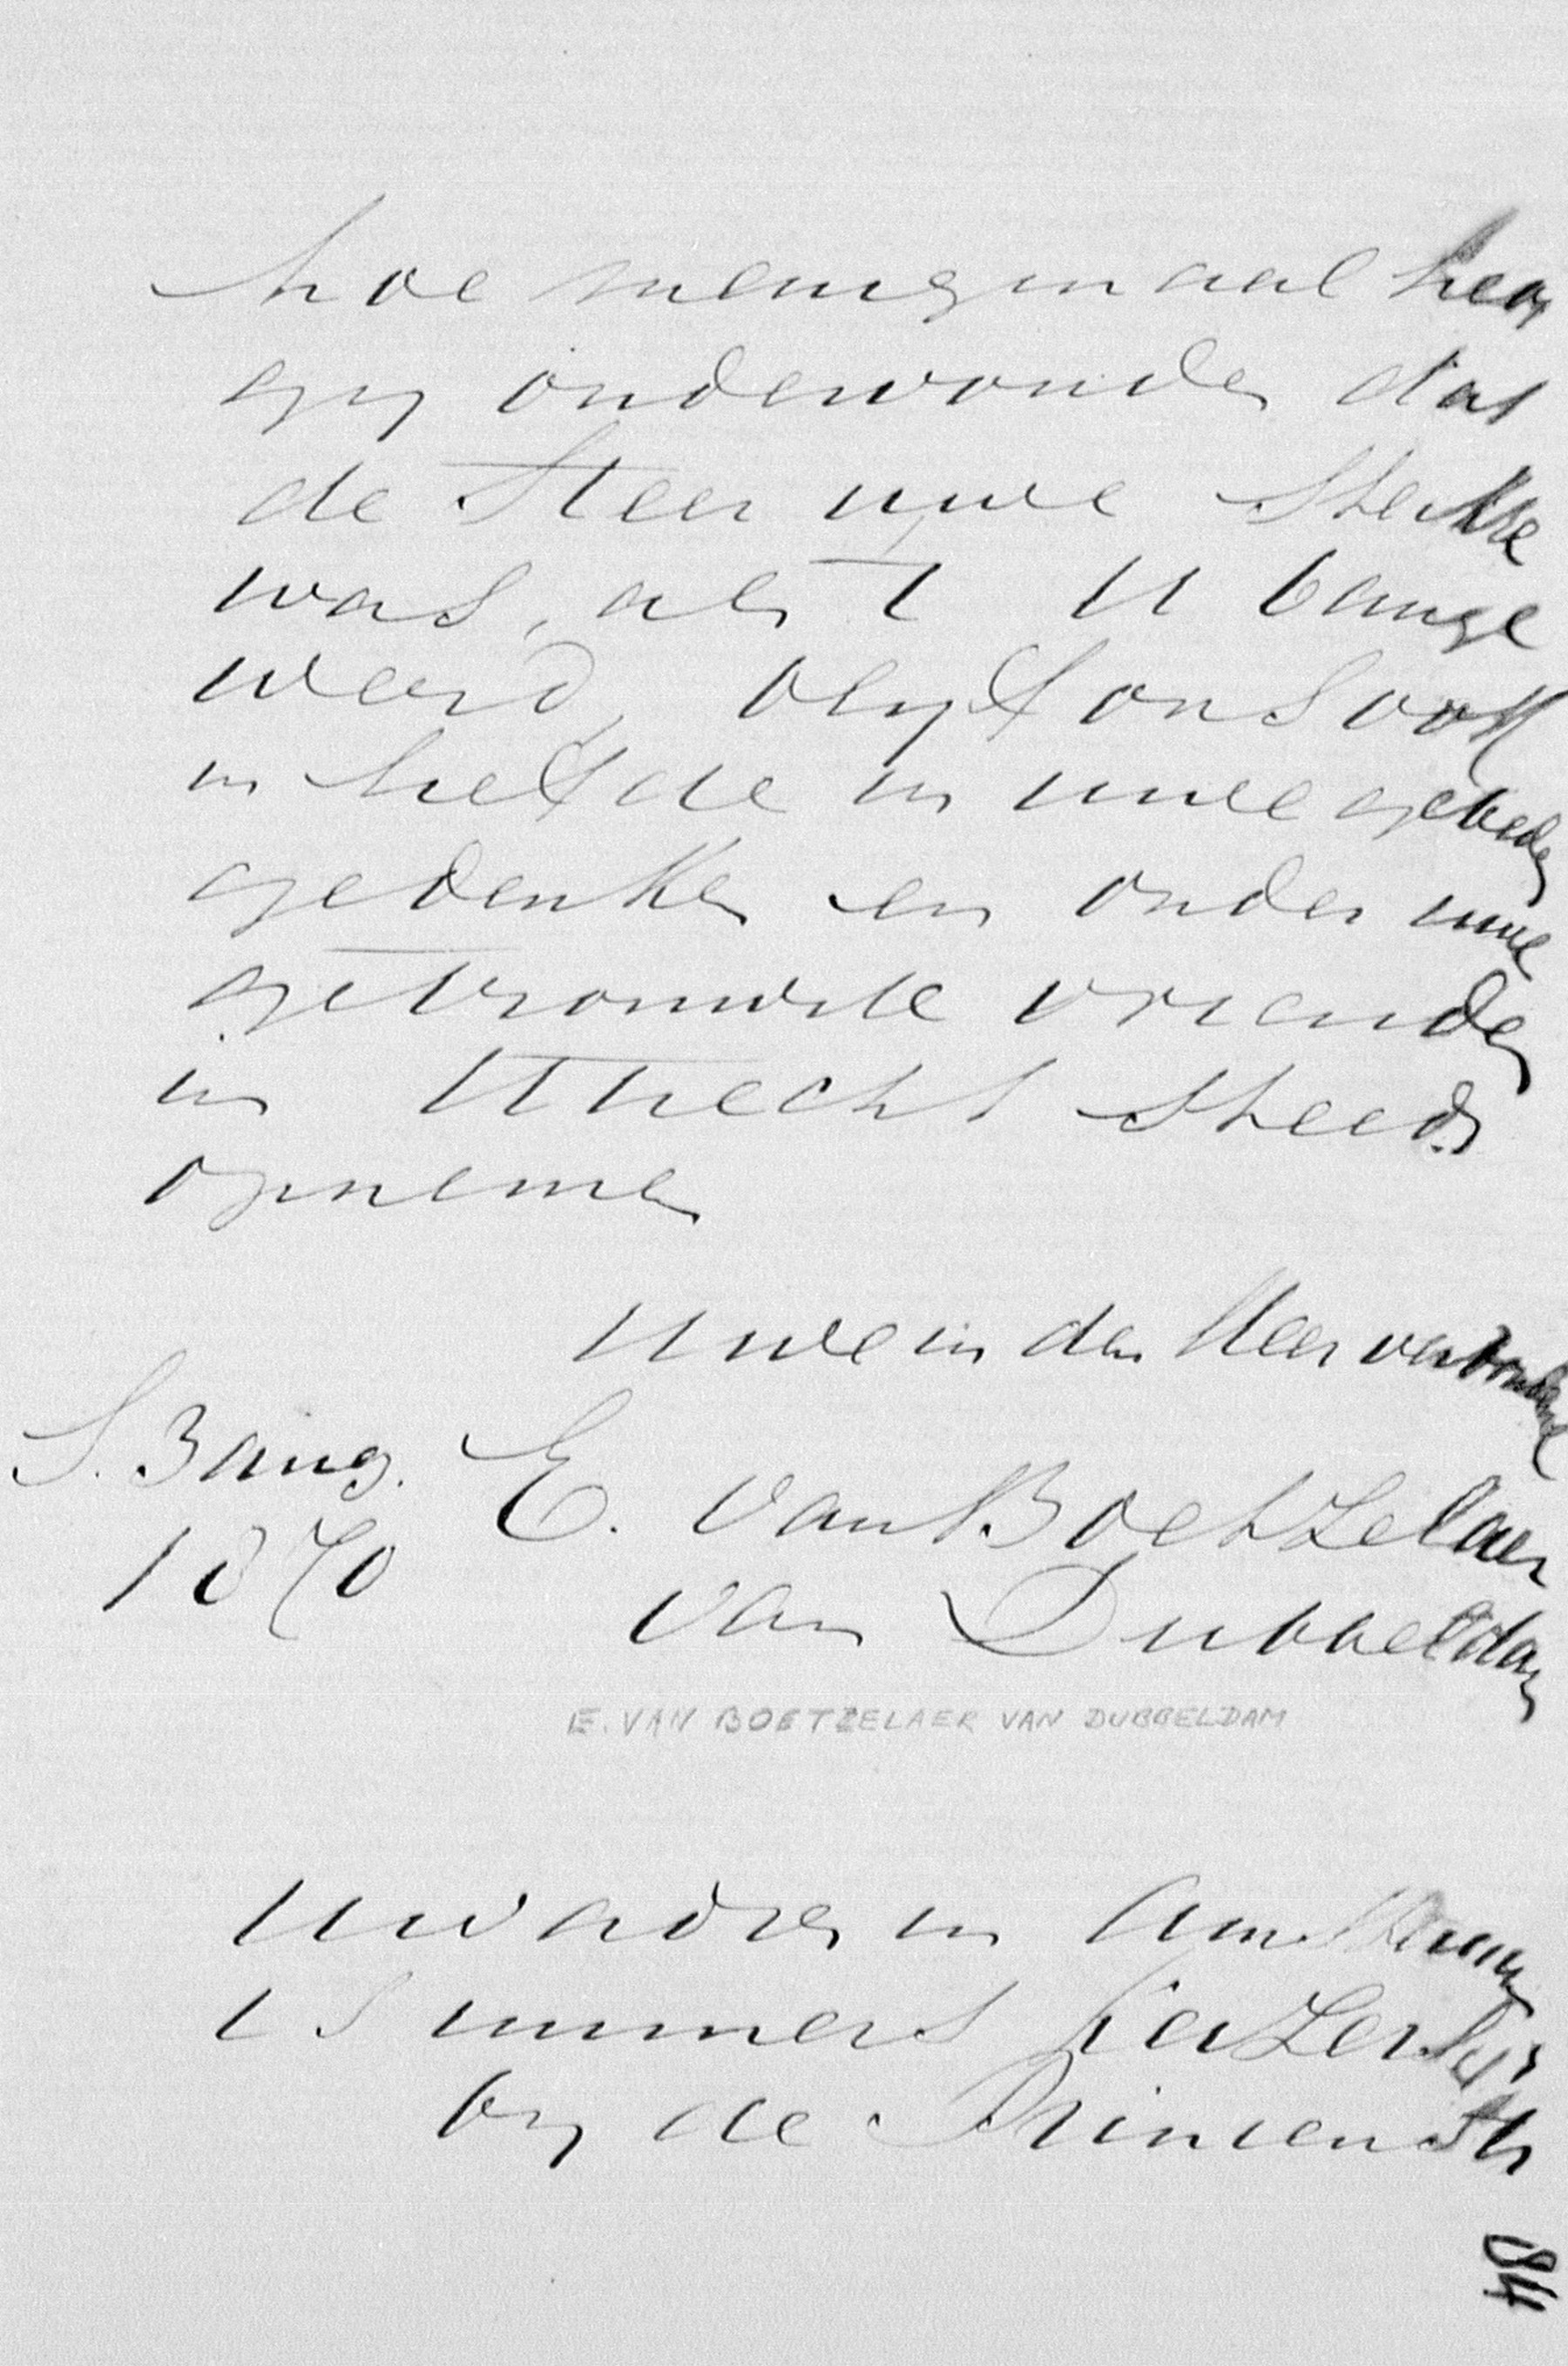 hoe menigmaal heb
gy ondervonden dat
de Heer uwe sterkte
was, als 't U bange
werd, blyf ons ook
in liefde in uwe gebeden
gedenken en onder uwe
getrouwste vrienden
in Utrecht steeds
opnemen
Uwe in den Heer verbondene
S. 3 aug. E. van Boetzelaer
1870 van Dubbeldam
E. VAN BOETZELAER VAN DUBBELDAM
Uw adres in Amsterdam
is immers Keizersgr
by de Prinsenstr
84